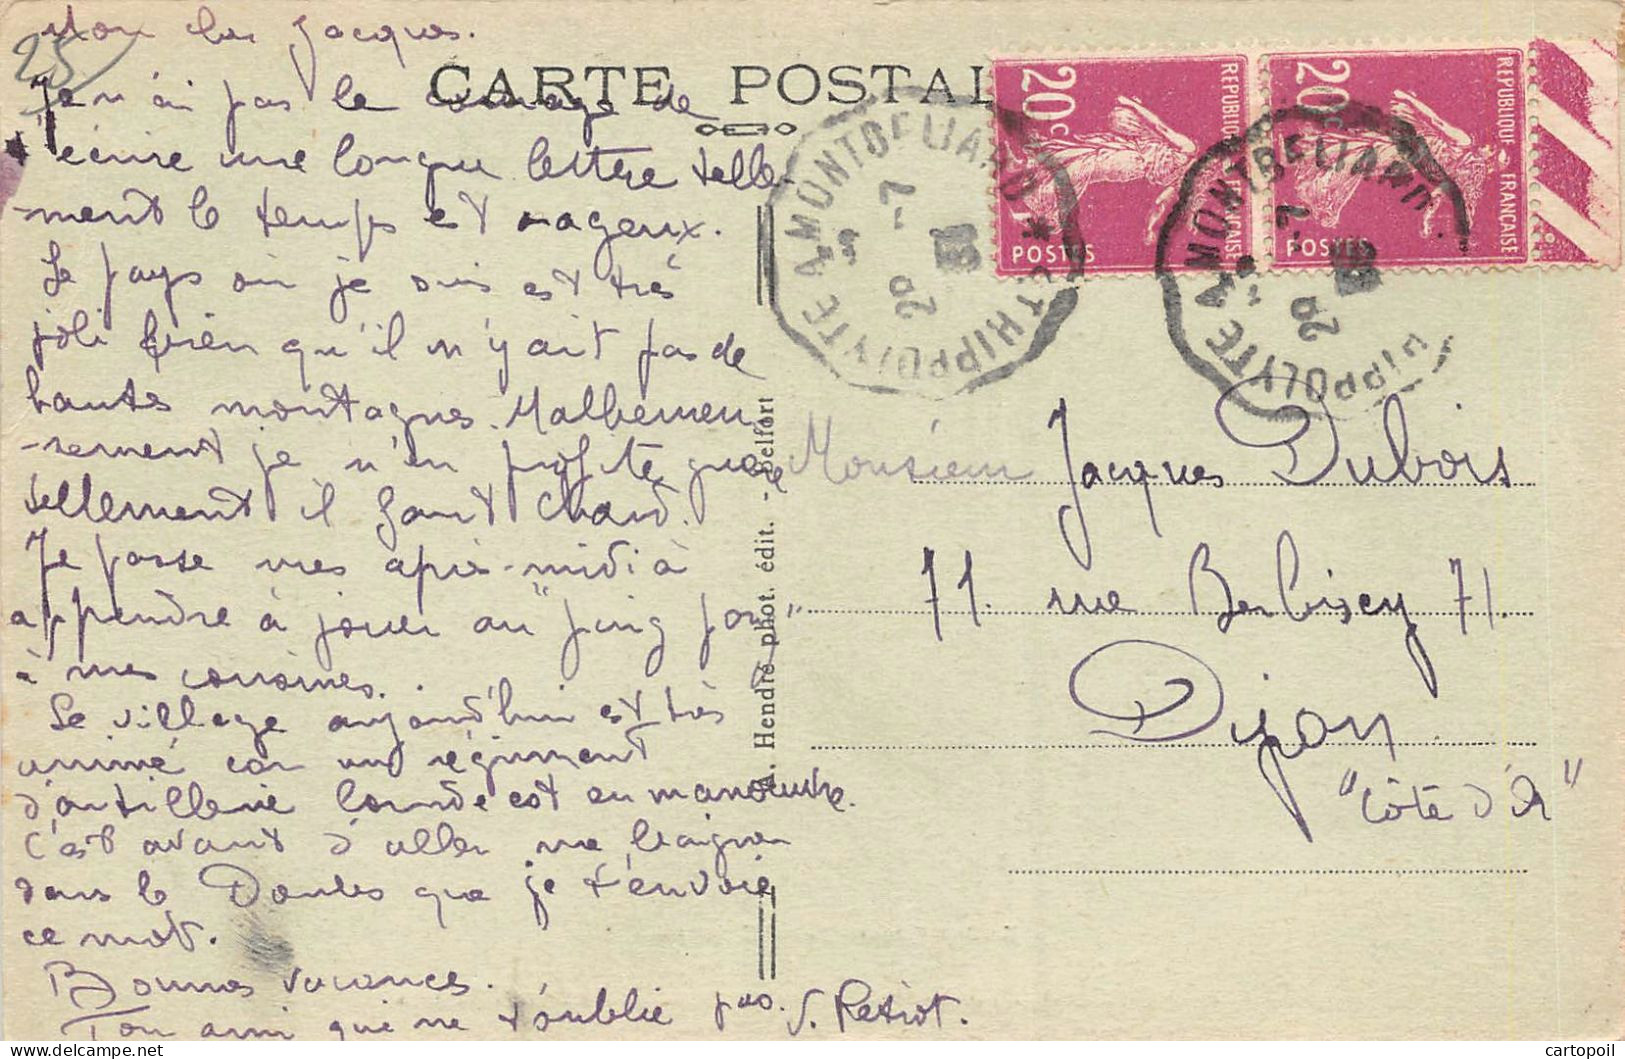 25
Mon cher Jacques.
CARTE POSTAL
Je n'ai pas le courage de
t'écrire une longue lettre telle-
-ment le temps est orageux.
Le pays où je suis est très
joli bien qu'il n'y ait pas de
hautes montagnes. Malheureu
-sement je n'en profite guère
tellement il fait chaud.
Je passe mes après-midi à
apprendre à jouer au "ping pong"
à mes cousines.
Le village aujourd'hui est très
animé car un régiment
d'artillerie lourde est en manœuvre.
C'est avant d'aller me baigner
dans le Doubs que je t'envoie
ce mot.
Bonnes vacances.
Ton ami qui ne t'oublie pas. J. Petiot.
A. Hendré phot. édit. - Belfort
20c
REPUBLIQUE FRANÇAISE
POSTES
20c
REPUBLIQUE FRANÇAISE
POSTES
MONTBELIARD A ST HIPPOLYTE
20 -7
MONTBELIARD A HIPPOLYTE
20 -7
Monsieur Jacques Dubois
71. rue Berbisey 71.
Dijon
"Côte d'Or"
cartopoil